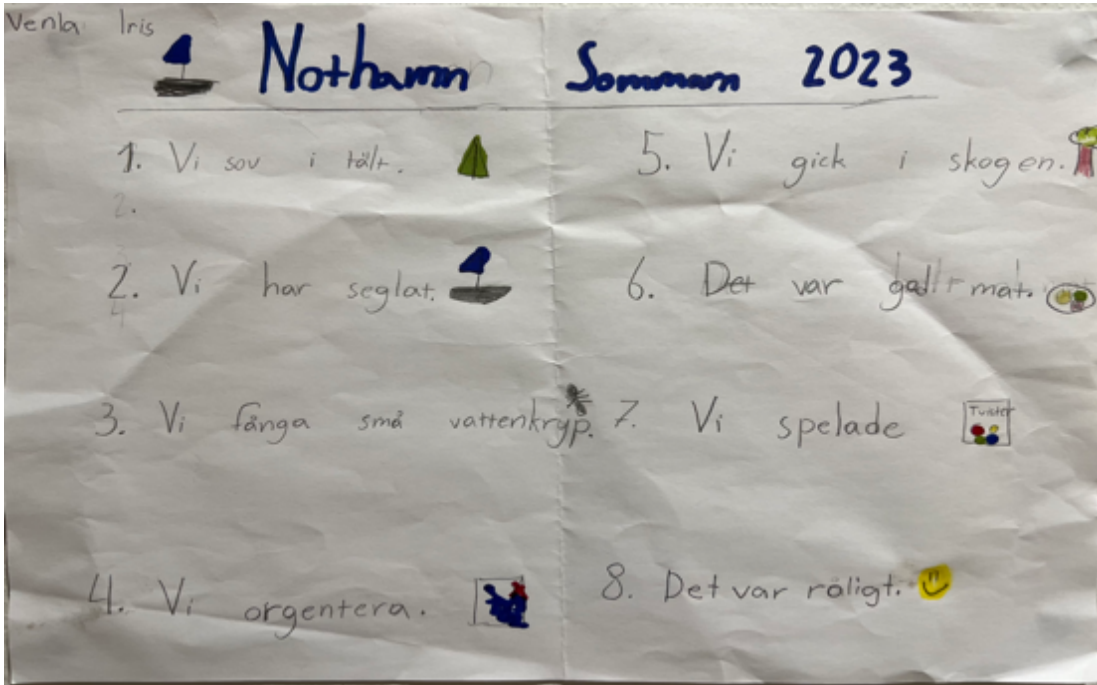 Venla Iris
Nothamn Sommarn 2023
1. Vi sov i tält.
2.
2. Vi har seglat.
4
3. Vi fånga små vattenkryp.
4. Vi orgentera.
5. Vi gick i skogen.
6. Det var mat.
7. Vi spelade
Twister
8. Det var roligt.